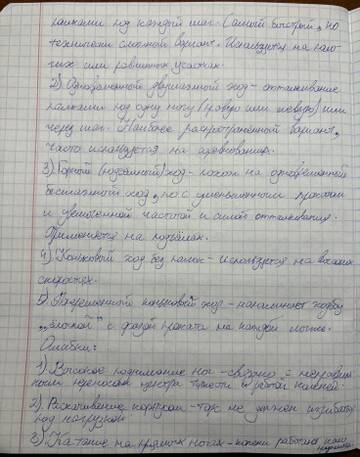 палками под каждый шаг. Самый быстрый, но
технически сложный вариант. Используется на
или равнинных участках.
2) Одновременный двухшажный ход - отталкивание
палками под одну ногу (правую или левую) или
через шаг. Наиболее распространённый вариант,
часто используется на соревнованиях.
3) Горный (подъёмный) ход - похож на одновременный
бесшажный ход, но с уменьшенным прокатом
и увеличенной частотой и силой отталкивания.
Применяется на подъёмах.
4) Коньковый ход без палок - используется на высоких
скоростях.
5) коньковый ход - напоминает ходьбу
"ёлкой" с фазой проката на каждой лыже.
Ошибки:
1) Высокое поднимание ног - связано с неправиль
ным переносом центра тяжести и работой коленей.
2) Раскачивание корпусом - торс не должен изгибаться
под нагрузкой.
3) Катание на прямых ногах - колени работают как